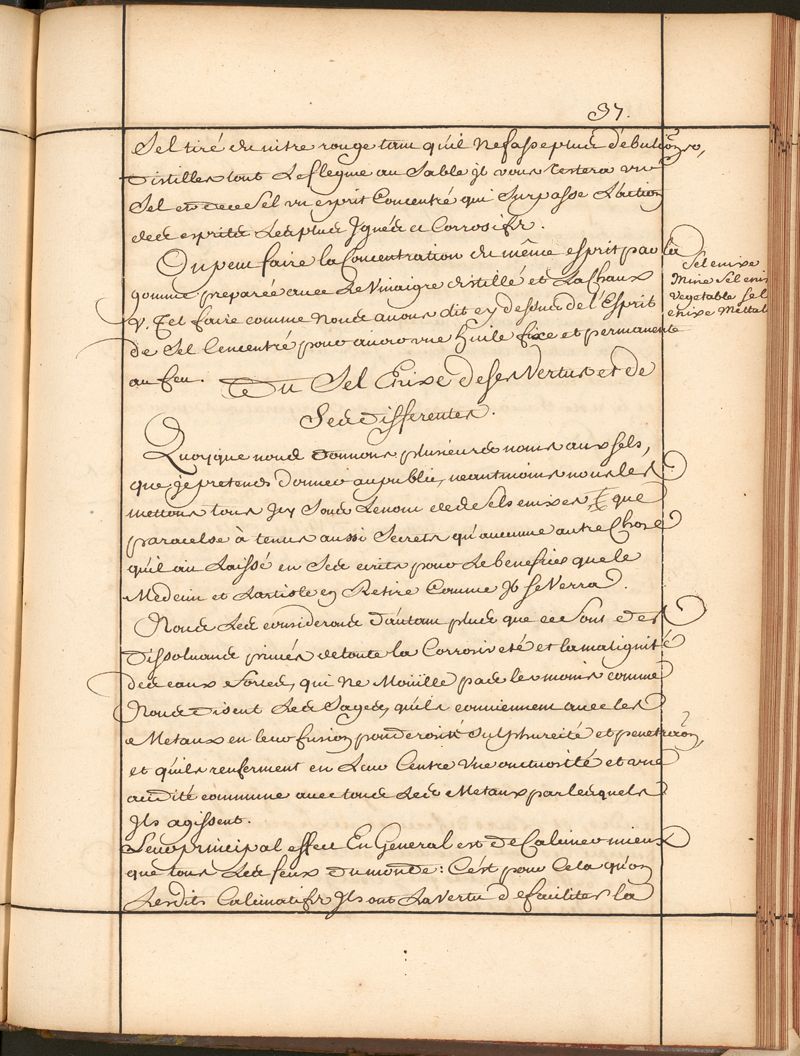 37.
Sel tiré du nitre rouge tant qu'il ne fasse plus d'ebulíon,
Distilles tout Le flegme au Sable jl vous restera un
Sel et de ce Sel un esprit Concentré qui Surpasse L'action
des esprits Les plus Jgnés et Corrosifs.
On peut faire la Concentration du même esprit par la
gomme preparée avec Le Vinaigre distillé et La Chaux
V. Et faire comme Nous avons dit cy dessus de l'Esprit
de Sel Concentré pour avoir une huile fixe et permanente
au feu.
Du Sel Enixe de ses Vertus et de
Ses differentes.
Quoyque nous donnons plusieurs noms aux sels,
que je pretends donner au public, neantmoins nous les
mettons tous Jcy Sous Le nom de Sels enixes que
paracelse à tenus aussi Secrets qu'aucune autre Chose
qu'il ait Laissé en Ses ecrits pour Le benefice que le
Medecin et L'artiste en Retire Comme Jl se Verra.
Nous Les considerons d'autant plus que ce Sont des
Dissoluans privés de toute la Corrosiveté et la malignité
des eaux fortes, qui Ne Mouille pas les mains comme
Nous disent Les Sages, qu'ils conviennent avec les
Metaux en leur fusion ponderosité Sulphureité et penetraõn,
et qu'ils renferment en Leur Centre Une onctuosité et une
acidité commune avec tous Les Metaux par lesquels
Jls agissent.
Leur principal effet En General est de Calciner mieux
que tous Les feux du monde: C'est pour Cela qu'on
Les dits Calcinatifs Jls ont La Vertu de faciliter la
Sel enixe
Mine Sel enix
Vegetable Sel
enixe Mettal